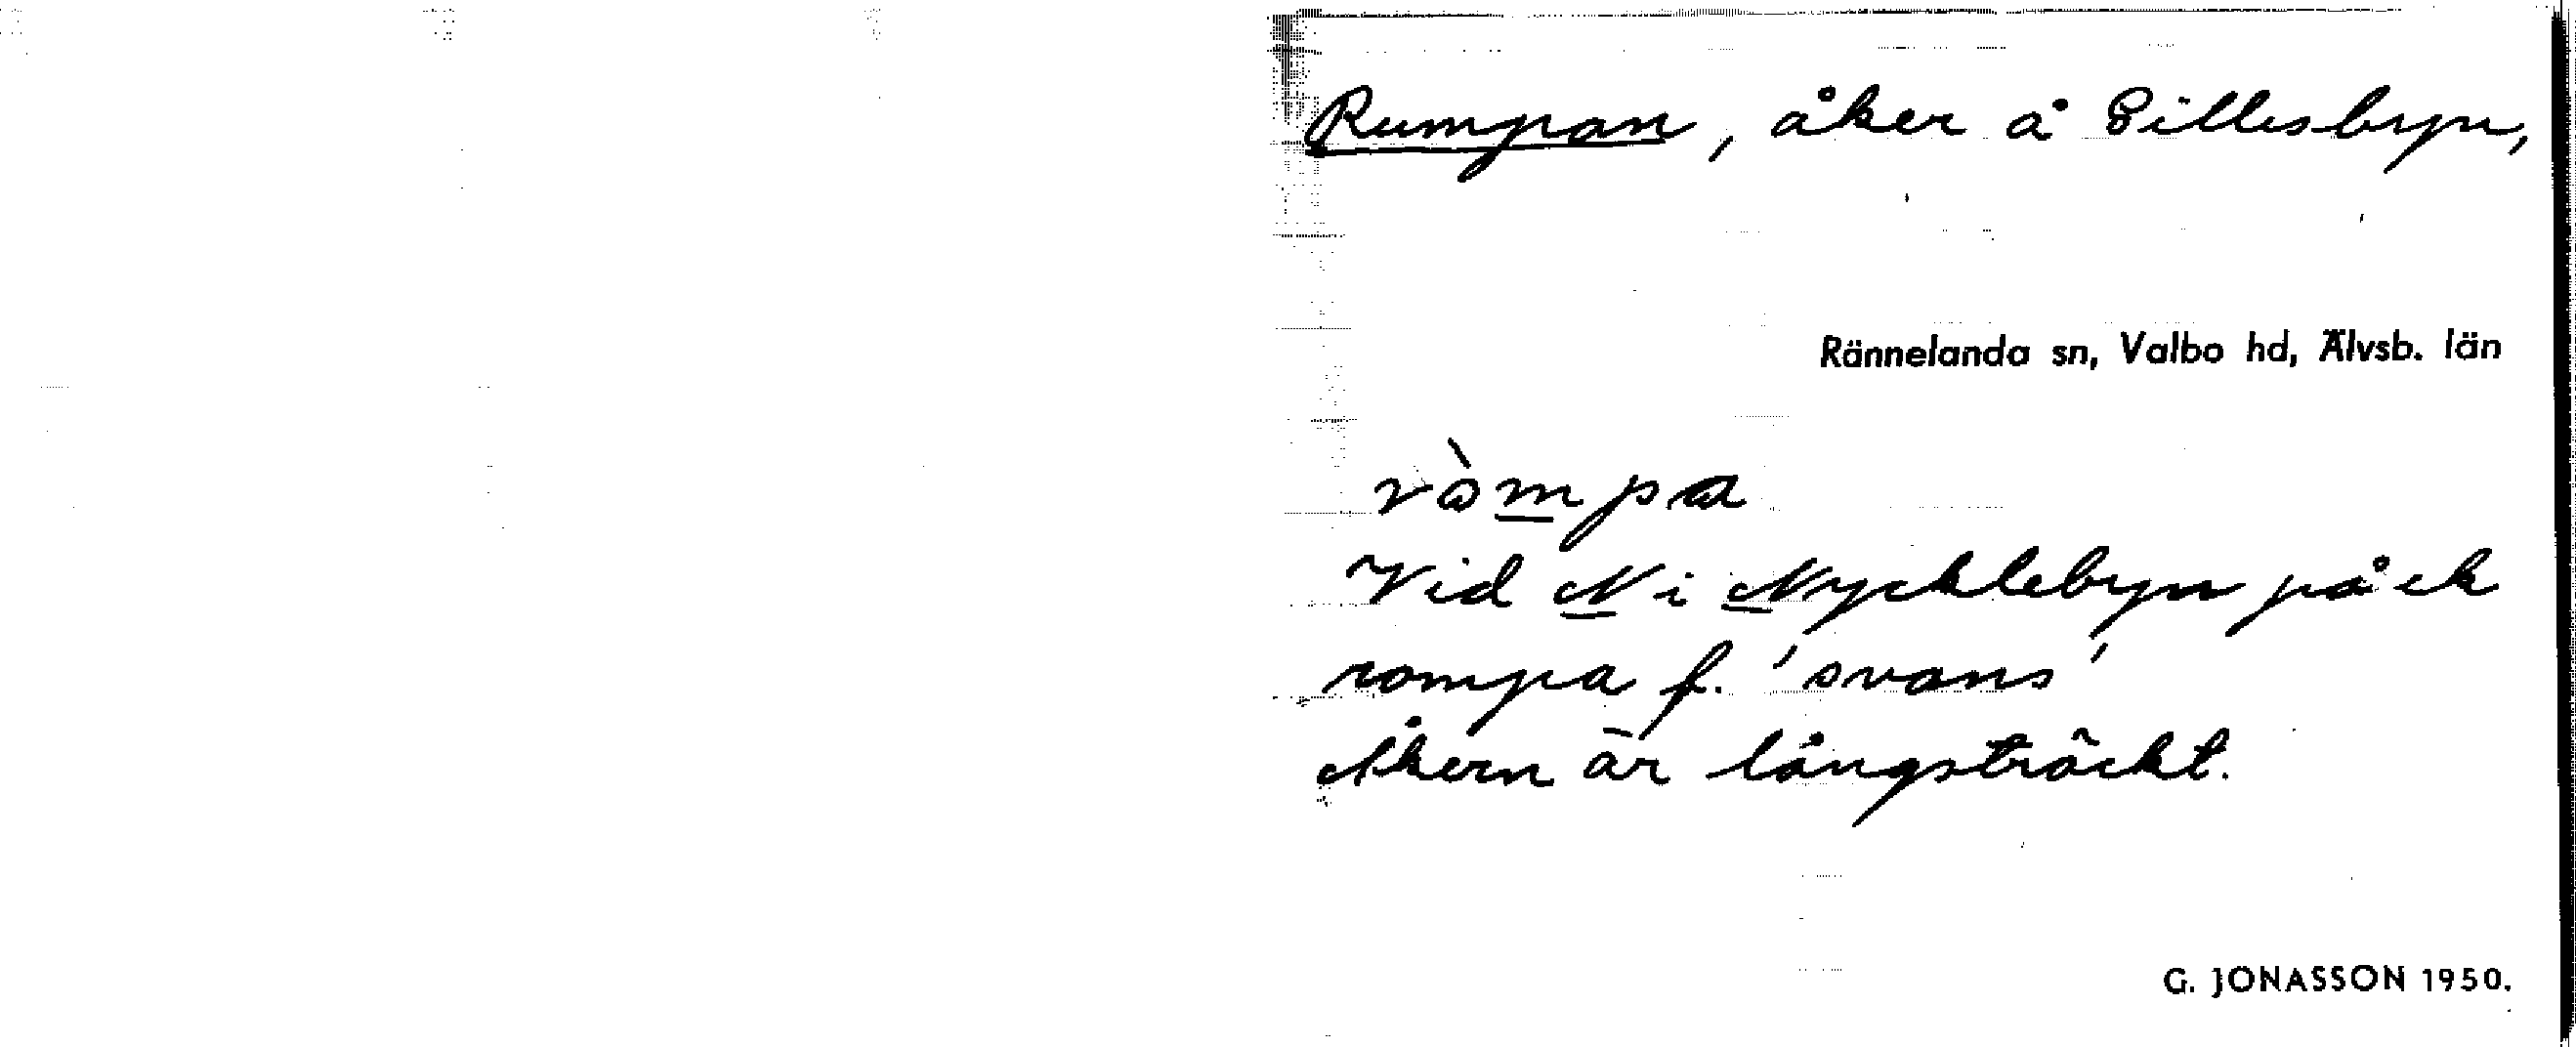 Rumpan, åker å Gillesbyn,
Rännelanda sn, Valbo hd, Älvsb. län
ròmpa
Vid N i Nycklebyn på ek
rompa f. 'svans'
Åkern är långsträckt.
G. JONASSON 1950.